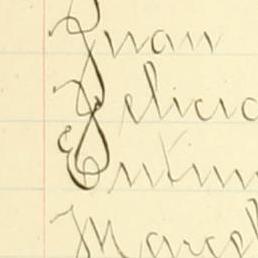 Juan
Felicia
Antun
Marcel